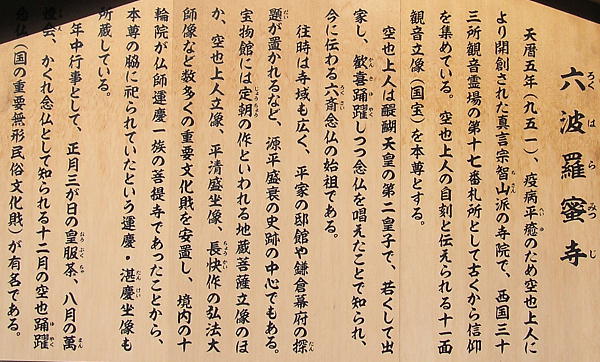 六波羅蜜寺
天暦五年(九五一)、疫病平癒のため空也上人に
より開創された真言宗智山派の寺院で、西国三十
三所観音霊場の第十七番札所として古くから信仰
を集めている。空也上人の自刻と伝えられる十一面
観音立像(国宝)を本尊とする。
空也上人は醍醐天皇の第二皇子で、若くして出
家し、歓喜踊躍しつつ念仏を唱えたことで知られ、
今に伝わる六斎念仏の始祖である。
往時は寺域も広く、平家の邸館や鎌倉幕府の探
題が置かれるなど、源平盛衰の史跡の中心でもある。
宝物館には定朝の作といわれる地蔵菩薩立像のほ
か、空也上人立像、平清盛坐像、長快作の弘法大
師像など数多くの重要文化財を安置し、境内の十
輪院が仏師運慶一族の菩提寺であったことから、
本尊の脇に祀られていたという運慶・湛慶坐像も
所蔵している。
年中行事として、正月三が日の皇服茶、八月の萬
燈会、かくれ念仏として知られる十二月の空也踊躍
念仏(国の重要無形民俗文化財)が有名である。